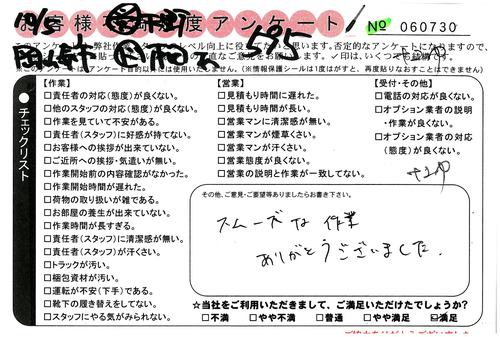 お客様満足度アンケート
No 060730
10/5
595
このアンケートは弊社
否定的なアンケートになりますので、
✓印は、いくつでも結構です。
※このアンケートは
(※情報保護シールは1度がすと、再度貼りなおすことはできません)
チェックリスト
【作業】
□責任者の対応(態度)が良くない。
□他のスタッフの対応(態度)が良くない。
□作業を見ていて不安がある。
□責任者(スタッフ)に好感が持てない。
□お客様への挨拶が出来ていない。
□ご近所への挨拶・気遣いが無い。
□作業開始前の内容確認がなかった。
□作業開始時間が遅れた。
□荷物の取り扱いが雑である。
□お部屋の養生が出来ていない。
□作業時間が長すぎる。
□責任者(スタッフ)に清潔感が無い。
□責任者(スタッフ)が汗くさい。
□トラックが汚い。
□梱包資材が汚い。
□運転が不安(下手)である。
□靴下の履き替えをしてない。
□スタッフにやる気がみられない。
【営業】
□見積もり時間に遅れた。
□見積もり時間が長い。
□営業マンに清潔感が無い。
□営業マンが煙草くさい。
□営業マンが汗くさい。
□営業態度が良くない。
□営業の説明と作業が一致してない。
【受付・その他】
□電話の対応が良くない。
□オプション業者の説明
・作業が良くない。
□オプション業者の対応
(態度)が良くない。
その他、ご意見・ご要望等ありましたらお書き下さい。
スムーズな作業
ありがとうございました。
☆当社をご利用いただきまして、ご満足いただけたでしょうか?
□不満 □やや不満 □普通 □やや満足 ☑満足
ご協力ありがとうございました